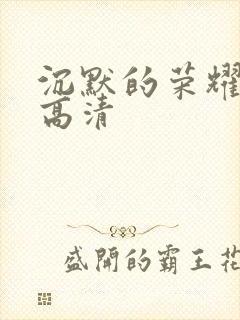 沉默的荣耀
高清
盛开的霸王花